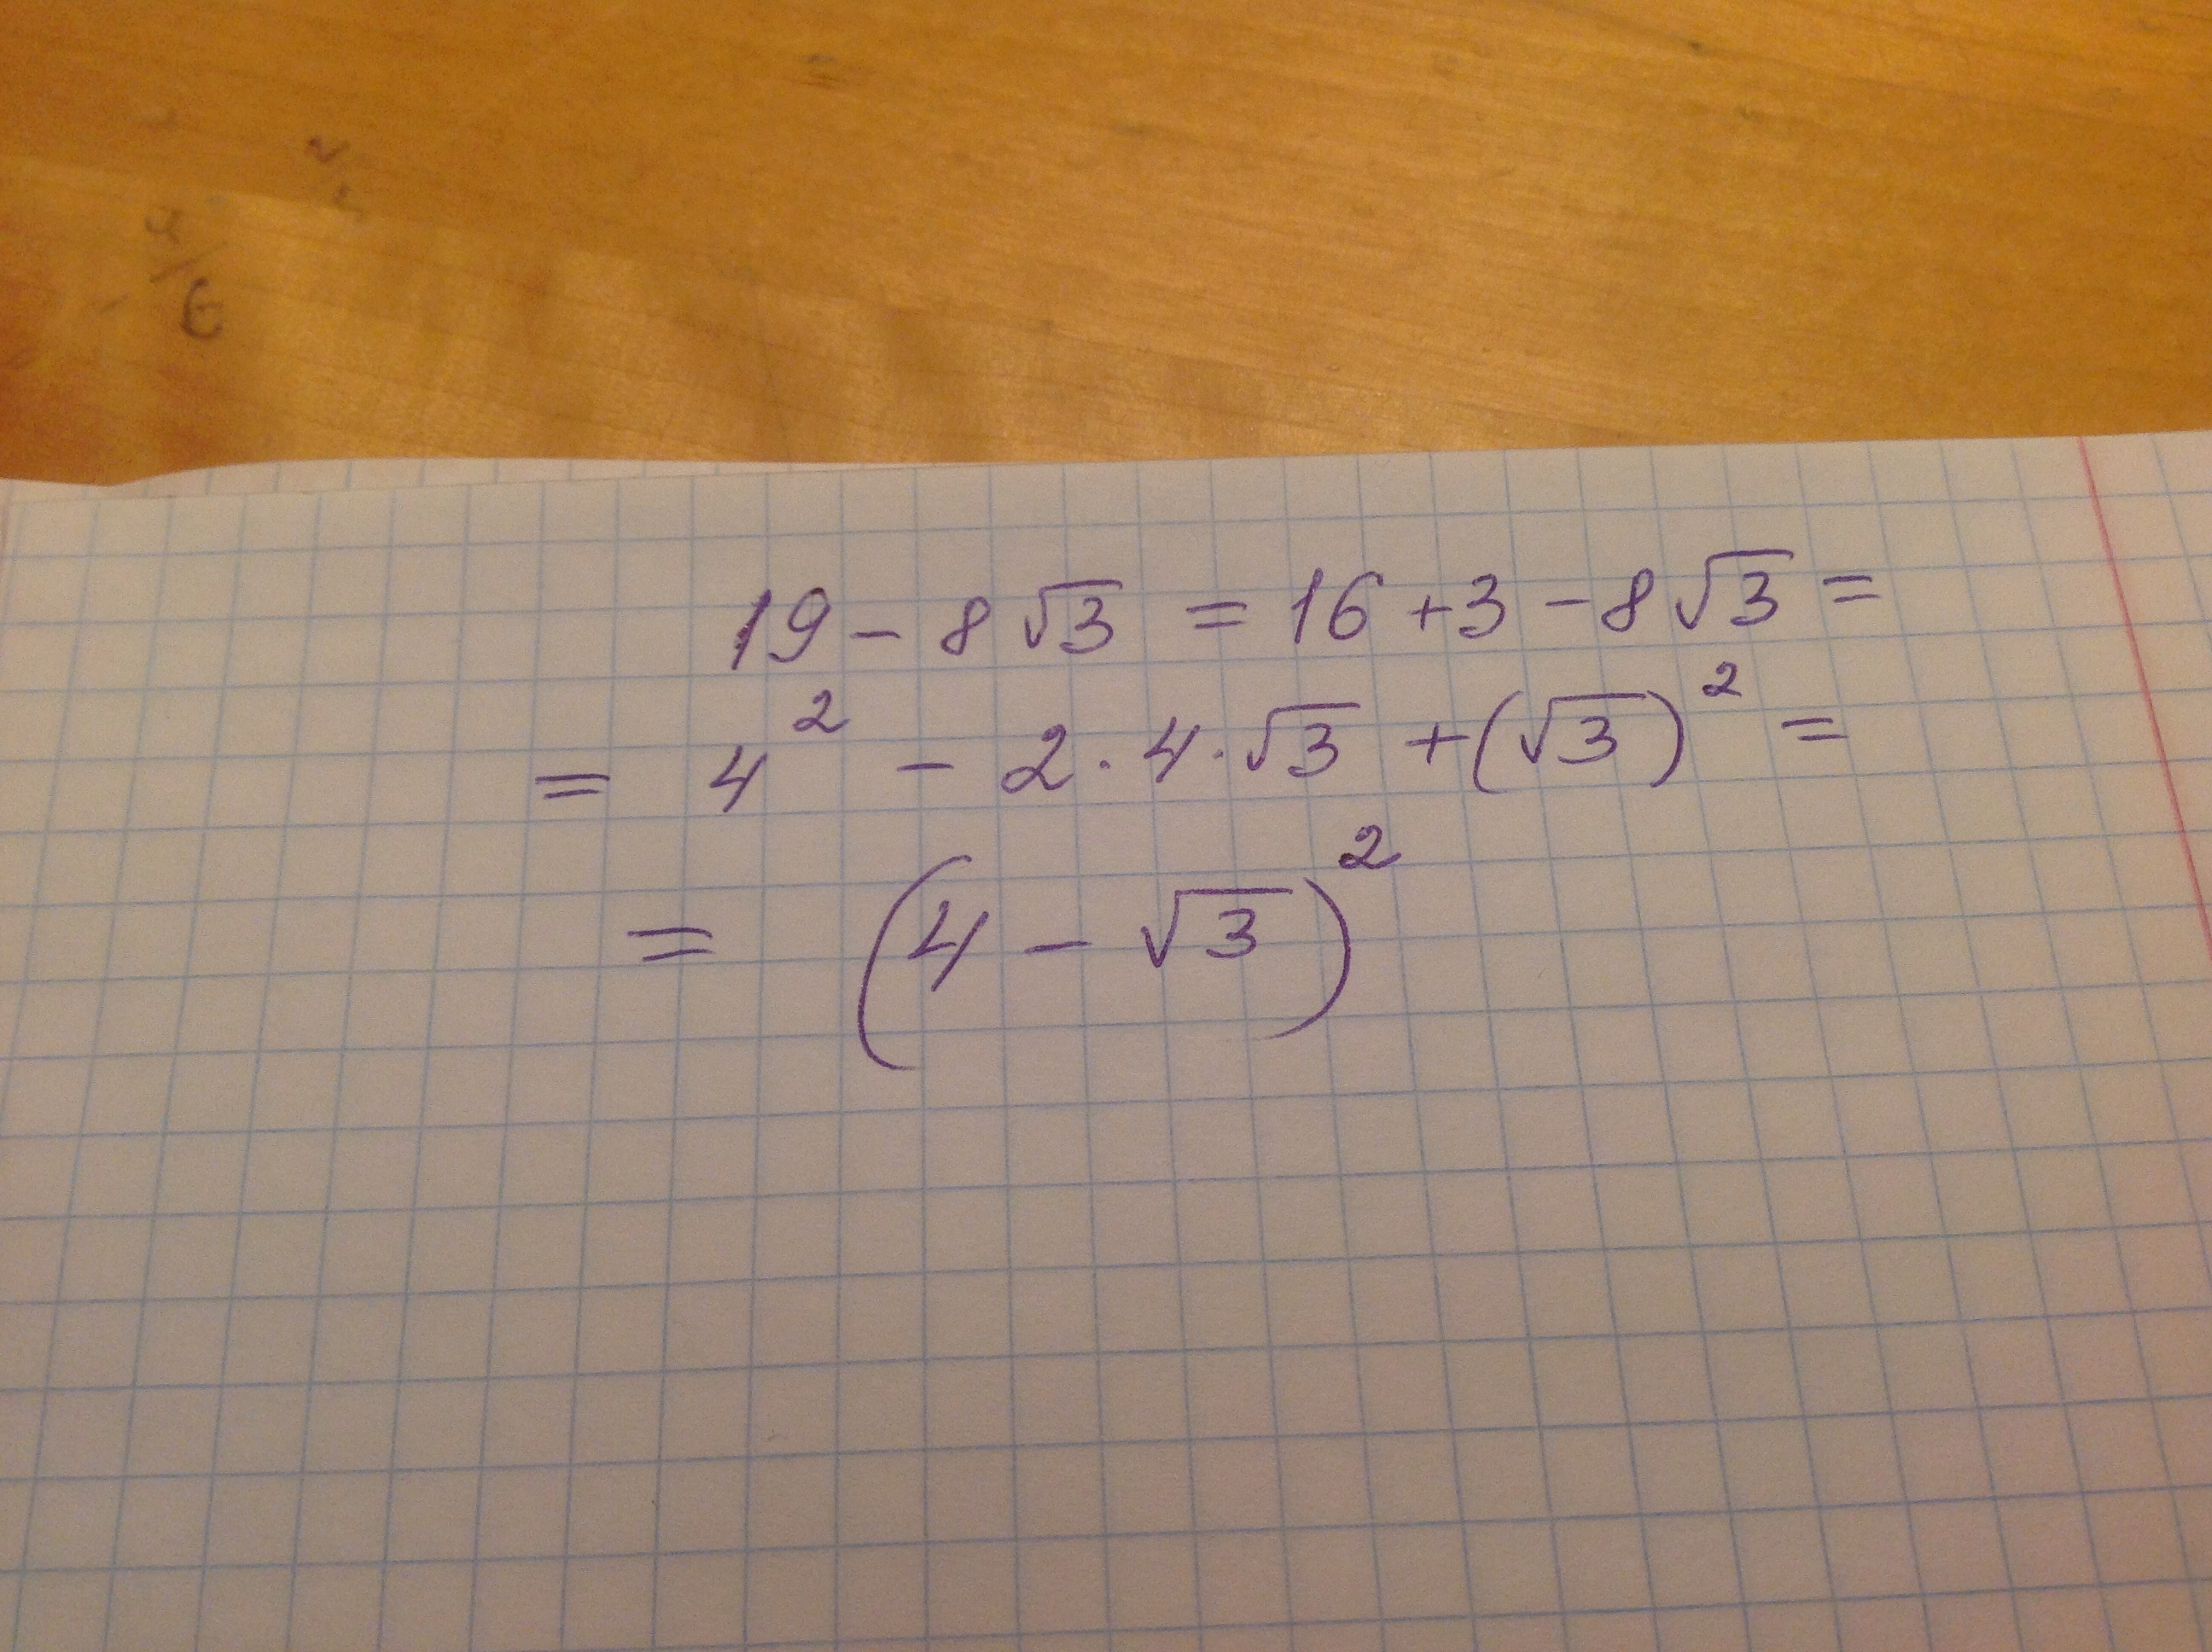 19 - 8√3 = 16 + 3 - 8√3 =
= 4² - 2 · 4 · √3 + (√3)² =
= (4 - √3)²